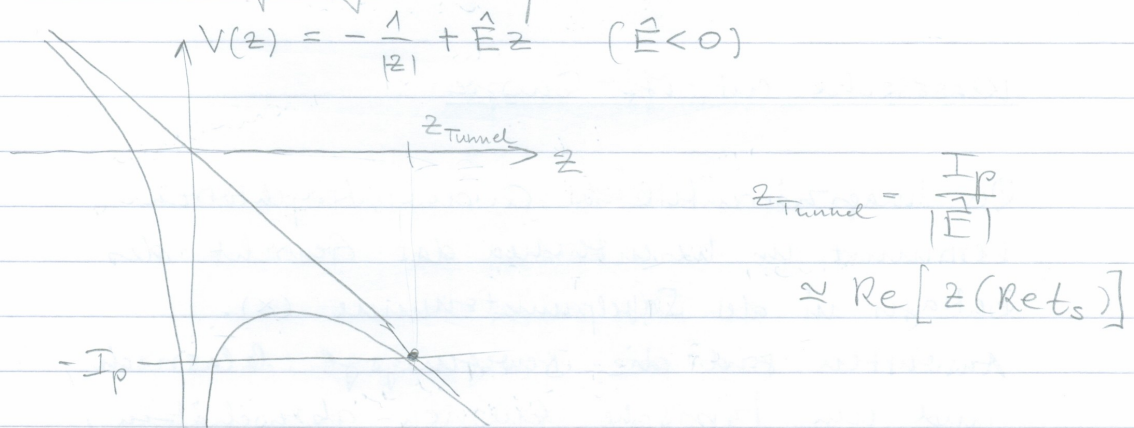 V(z) = - 1/|z| + Ê z (Ê < 0)
z_Tunnel
z
z_Tunnel = I_p/|Ê|
≃ Re[z(Re t_s)]
- I_p